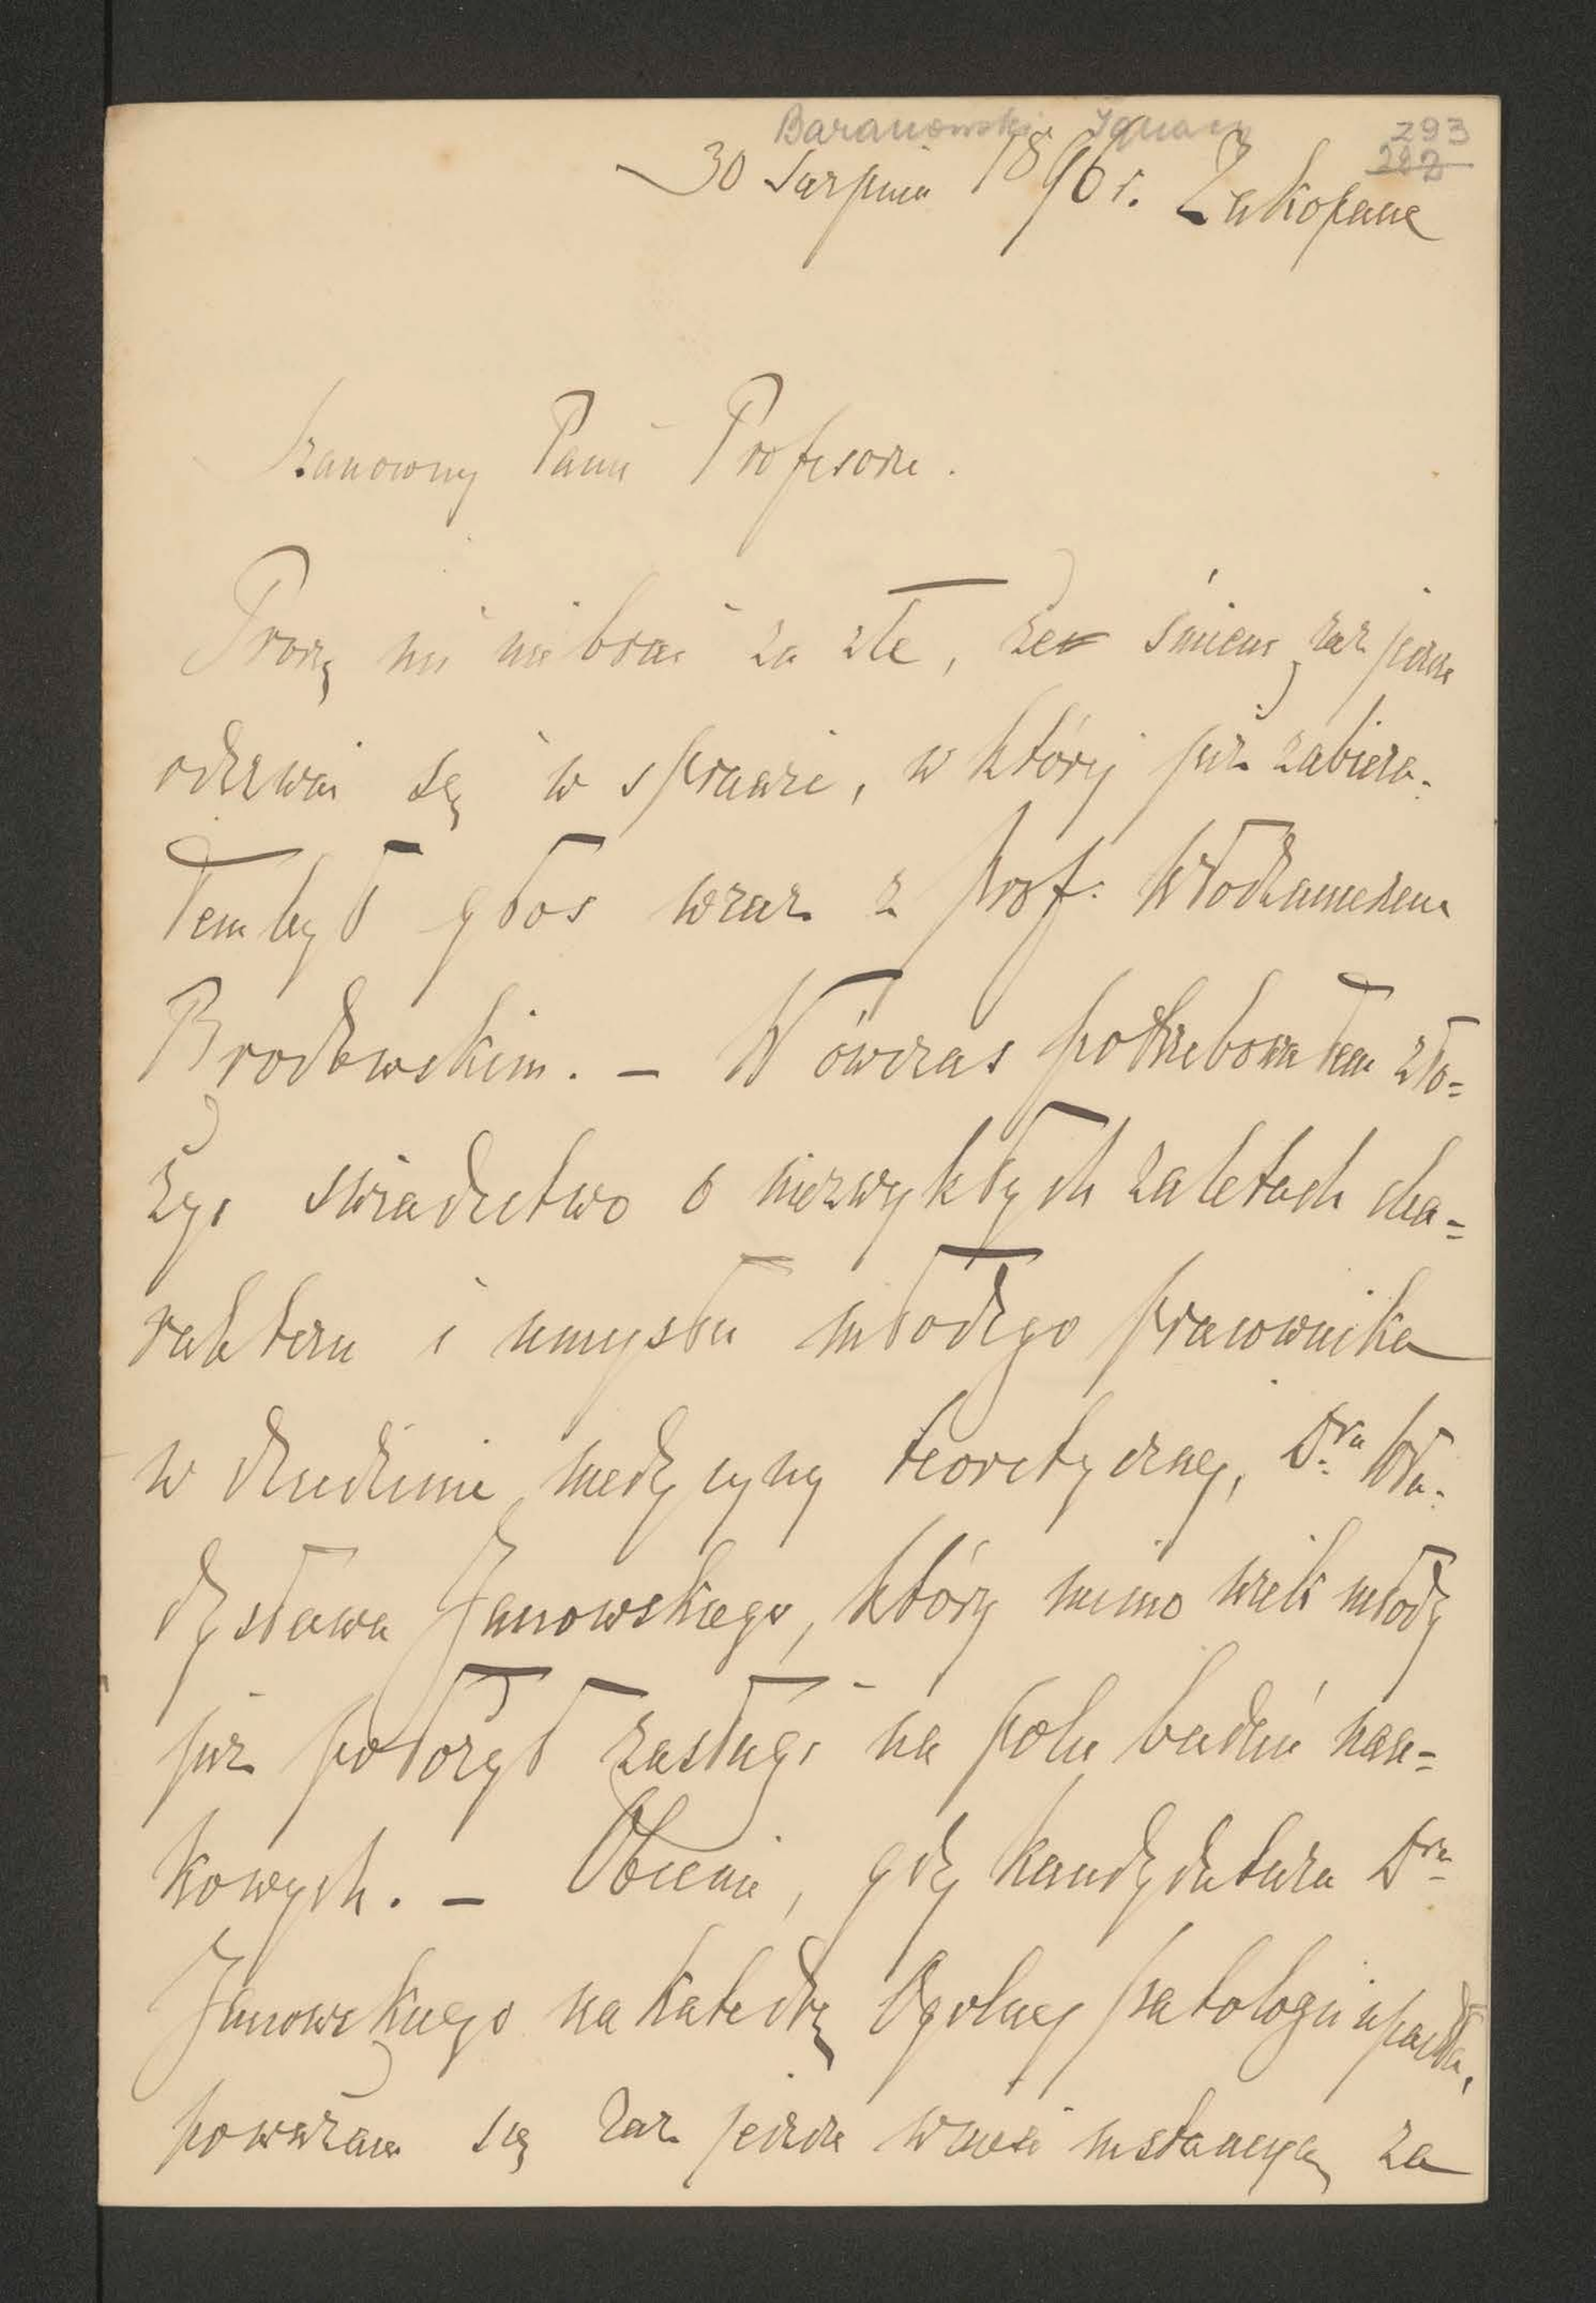 Baranowski Ignacy
293
282
30 Sierpnia 1896 r. Zakopane
Szanowny Panie Profesorze.
Proszę mi nie brać za złe, że śmiem raz jeszcze
odezwać się w sprawie, w której już zabiera-
łem był głos wraz z prof. Włodzimierzem
Brodowskim. – Wówczas potrzebowałem zło=
żyć świadectwo o niezwykłych zaletach cha=
rakteru i umysłu młodego pracownika
w dziedzinie medycyny teoretycznej, Dra Wła-
dysława Janowskiego, który mimo wiek młody
już położył zasługi na polu badań nau=
kowych. – Obecnie, gdy kandydatura Dra
Janowskiego na katedrę Ogólnej patologii upadła,
poważam się raz jeszcze wnieść instancyę za